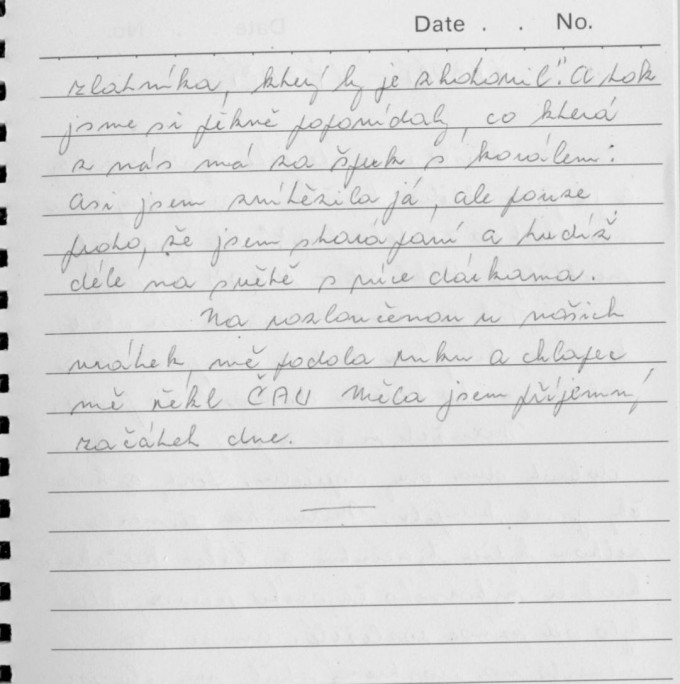 Date . . No.
zlatníka, který by je zhotovil". A tak
jsme si pěkně popovídaly, co která
z nás má za šperk s korálem:
asi jsem zvítězila já, ale pouze
proto, že jsem stará paní a tudíž
déle na světě s více dárkama.
Na rozloučenou u našich
vrátek, mě podala ruku a chlapec
mě řekl ČAU Měla jsem příjemný
začátek dne.